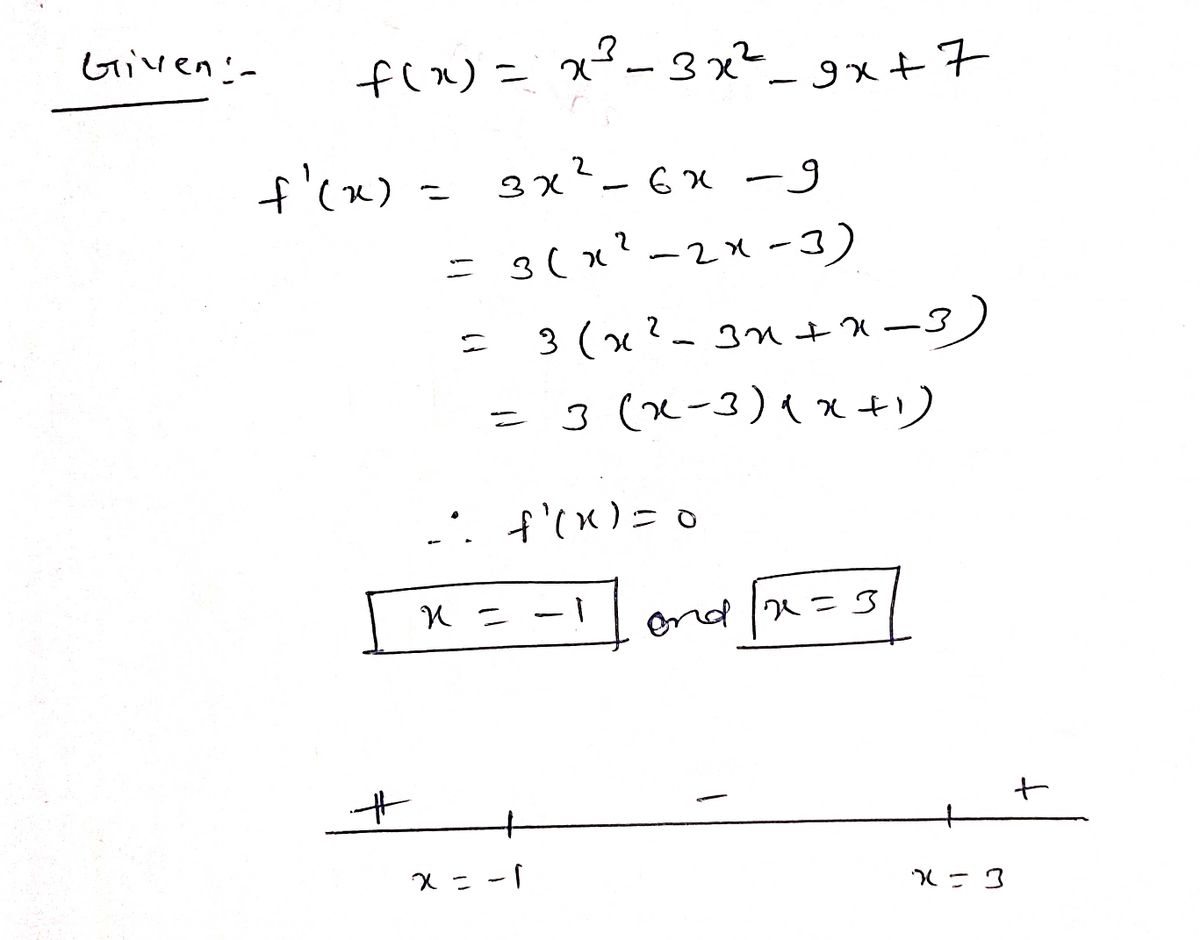 Given:- f(x) = x³ - 3x² - 9x + 7
f'(x) = 3x² - 6x - 9
= 3(x² - 2x - 3)
= 3(x² - 3x + x - 3)
= 3(x-3)(x+1)
∴ f'(x) = 0
x = -1 and x = 3
+ - +
x = -1 x = 3